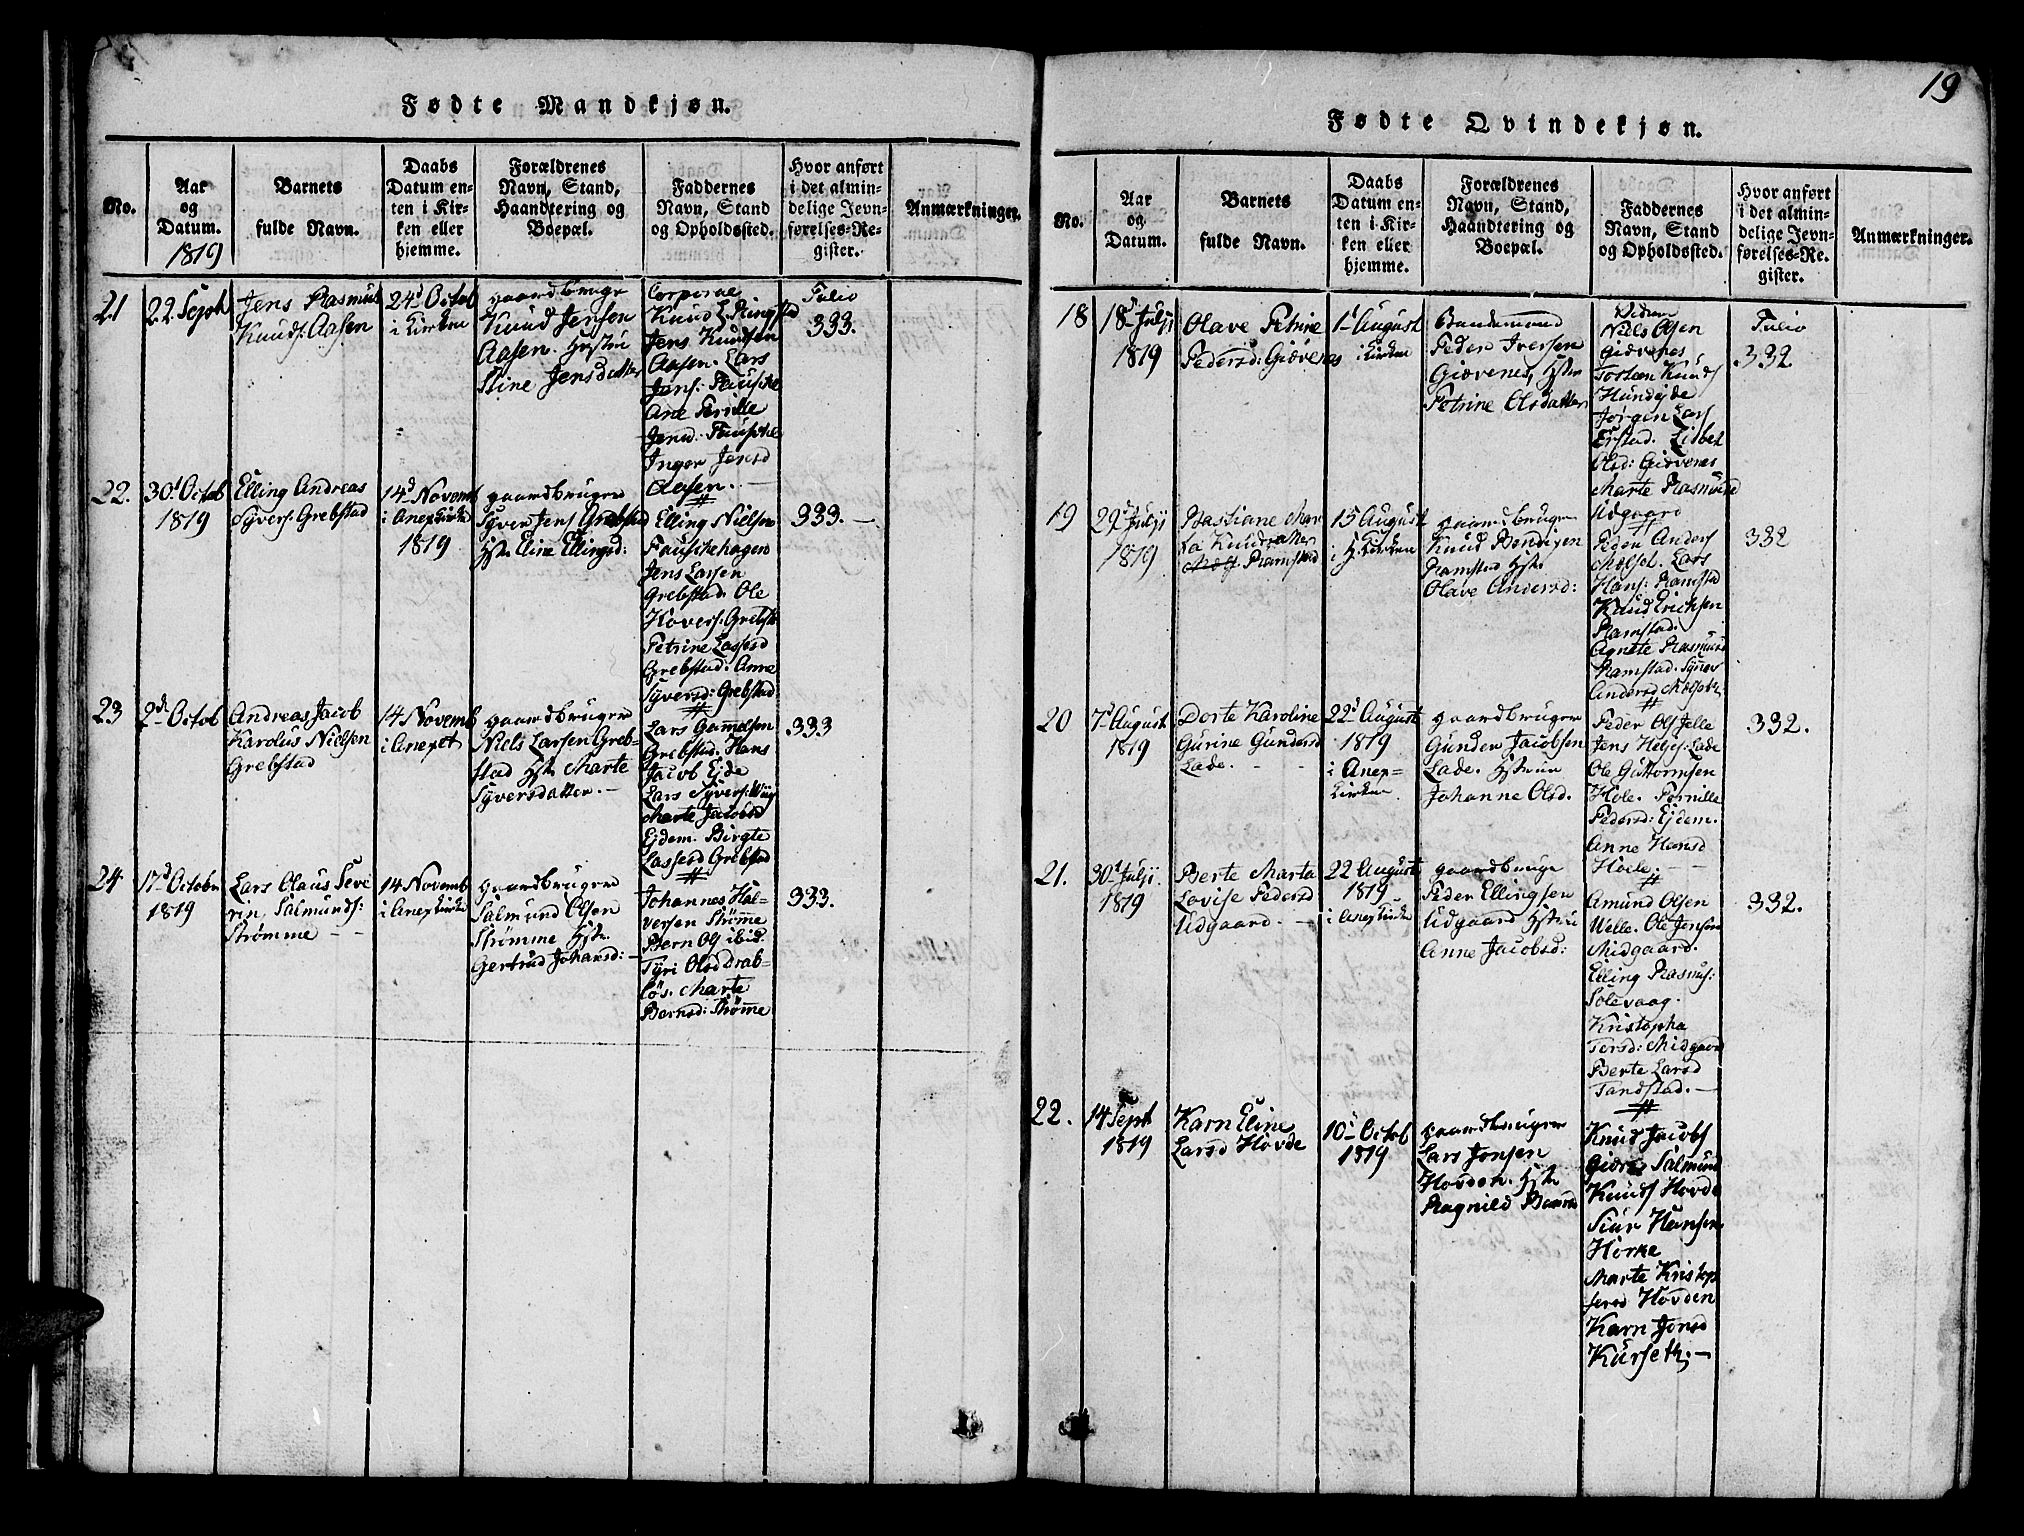 19
Fødte Mandkjøn.
No.
Aar
og
Datum.
1819
Barnets
fulde Navn.
Daabs
Datum en-
ten i Kir-
ken eller
hjemme.
Forældrenes
Navn, Stand,
Haandtering og
Boepæl.
Faddernes
Navn, Stand
og Opholdssted.
Hvor anført
i det almin-
delige Jevn-
førelses-Re-
gister.
Anmærkninger.
21
22 Sept
Jens Rasmus
Knuds: Aasen
24d Octob
i Kirken
gaardbruger
Knud Jensen
Aasen. Hstrü
Stine Jensdatter
Corporal
Knud L. Ringstad
Jens Knudsen
Aasen. Lars
Jens: Fauske
Ane Pernille
Jensd. Fauske
Inger Jensd
Aasen. —
Folio
333.
22.
30d Octob
1819
Elling Andreas
Syvers: Grebstad
14d Novemb
i Anexkirke
1819
gaardbruger
Syver Jens Grebstad
Hst. Eline Ellingsd:
Elling Nielsen
Fauskehagen
Jens Lassen
Grebstad. Ole
Hovers: Grebst
Petrine Lassesd
Grebstad. Anne
Syversd: Grebstad
333. —
23
2d Octob
Andreas Jacob
Karolus Nielsen
Grebstad
14 Novemb
i Anexet
gaardbruger
Niels Larsen Greb-
stad Hst. Marte
Syversdatter. —
Lars Gammelsen
Grebstad. Hans
Jacob Ejde
Lars Syvers:
Marte Jacobsd
Ejdem. Birgte
Lassesd Grebstad
333
24
17d Octobr
1819
Lars Olaus Seve
rin Salmunds:
Strømme - -
14 Novemb
i Anexkirke
gaardbruger
Salmund Olsen
Strømme Hst.
Gertrud Johansd: -
Johannes Hal-
versen Strømme
Bern Ols ibid.
Tyri Olsd Drab-
løs. Marte
Bernsd: Strømme
333.
Fødte Qvindekjøn.
No.
Aar
og
Datum.
Barnets
fulde Navn.
Daabs
Datum en-
ten i Kir-
ken eller
hjemme.
Forældrenes
Navn, Stand,
Haandtering og
Boepæl.
Faddernes
Navn, Stand
og Opholdssted.
Hvor anført
i det almin-
delige Jevn-
førelses-Re-
gister.
Anmærkninger.
18
18d Julji
1819
Olave Petrine
Pedersd: Giævenes
1d August
i Kirken
Bondemand
Peder Iversen
Giævenes, Hstr
Petrine Olsdatter
Niels Olsen
Giævenes
Tosten Knuds
Hundejde
Jørgen Lars
Erstad. Lisbet
Olsd: Giævenes
Marte Rasmusd
Udgaard
Folio
332.
19
29d Julji
1819
Bastiane Mar
ta Knudsdatter
Ramstad
15 August
i H. Kirken
gaardbruger
Knud Bendixen
Ramstad Hstr
Olave Andersd:
Peder Anders
Mælset. Lars
Hans: Ramstad
Knud Erichsen
Ramstad.
Agnete Rasmusd
Ramstad. Synev
Andersd Mælset.
332
20
7d August
1819
Dorte Karoline
Gurine Gundersd
Lade. - -
22d August
1819
i Anex-
kirken
gaardbruger
Gunder Jacobsen
Lade. Hstrue
Johanne Olsd.
Peder Ols Jelle
Jens Heljes: Lade
Ole Guttormsen
Hole. Pernille
Pedersd: Ejdem.
Anne Hansd
Hole. —
332.
21.
30d Julji.
1819
Berte Marta
Lovise Pedersd
Udgaard. -
22 August
1819
i Anexkirke
gaardbruge
Peder Ellingsen
Udgaard Hstrü
Anne Jacobsd:
Amund Olsen
Welle. Ole Jensen
Midgaard.
Elling Rasmus:
Solevaag.
Kristopha
Tersd: Midgaard
Berte Larsd
Tandstad. —
332.
22.
14 Sept
1819
Karn Eline
Larsd Hovde
10d Octob
1819
gaardbruger
Lars Jonsen
Hovden. Hstr
Ragnild
Knud Jacobs
Salmund
Knuds Hovde
Siur Hansen
Hørke
Marte Kristop
fersd Hovden
Karn Jonsd
Kurseth. —